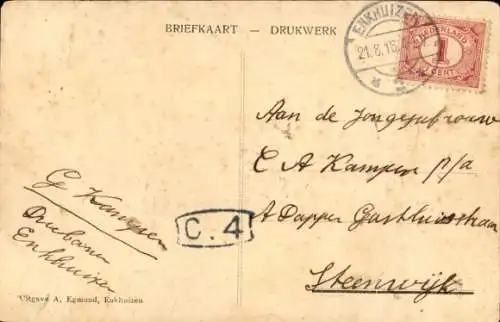 BRIEFKAART — DRUKWERK
ENKHUIZEN
21.8.16.
NEDERLAND
1
CENT
Aan de Jongejufvrouw
C A Kamper p/a
A Dapper Gasthuisstraat
Steenwijk
G Kamper
Enkhuizen
C. 4
Uitgave A. Egmond, Enkhuizen